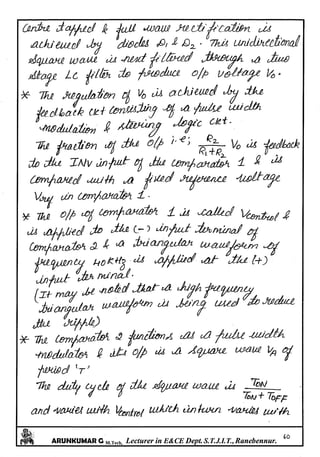 Centre tapped & full wave rectification is
achieved by diodes D₁ & D₂. This unidirectional
square wave is next filtered through a two
stage LC filter to produce o/p voltage V₀.
* The regulation of V₀ is achieved by the
feedback ckt consisting of a pulse width
modulation & steering logic ckt.
The fraction of the o/p i.e; R₂/(R₁+R₂) V₀ is feedback
to the INV input of the comparator 1 & is
compared with a fixed reference voltage
Vref in comparator 1.
* The o/p of comparator 1 is called Vcontrol &
is applied to the (-) input terminal of
comparator 2 & a triangular waveform of
frequency 40KHz is applied at the (+)
input terminal.
(It may be noted that a high frequency
triangular waveform is being used to reduce
the ripple)
* The comparator 2 functions as a pulse width
modulator & its o/p is a square wave VA of
period 'T'
The duty cycle of the square wave is TON/(TON + TOFF)
and varies with Vcontrol which inturn varies with
ARUNKUMAR G M.Tech, Lecturer in E&CE Dept. S.T.J.I.T., Ranebennur. 60